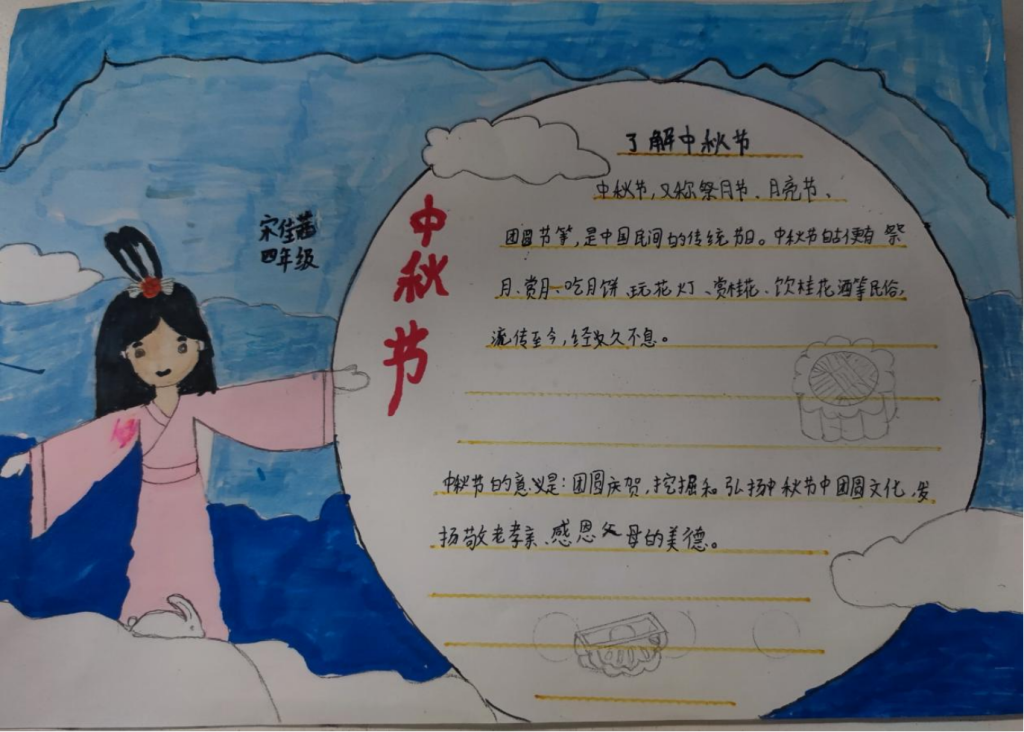 了解中秋节
中秋节,又称祭月节、月亮节、
团圆节等,是中国民间的传统节日。中秋节自古便有祭
月、赏月、吃月饼、玩花灯、赏桂花、饮桂花酒等民俗,
流传至今,经久不息。
中秋节的意义是:团圆庆贺,挖掘和弘扬中秋节中团圆文化,发
扬敬老孝亲、感恩父母的美德。
中秋节
宋佳茜
四年级